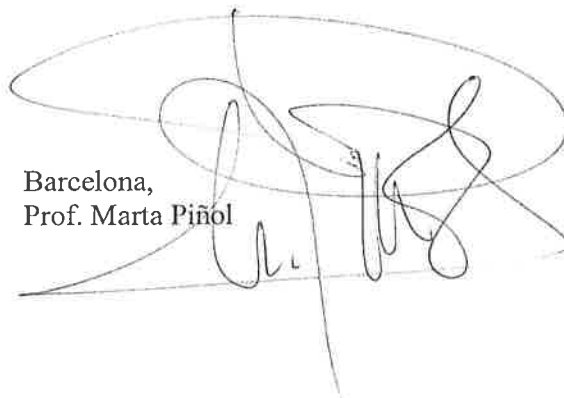 Barcelona,
Prof. Marta Piñol